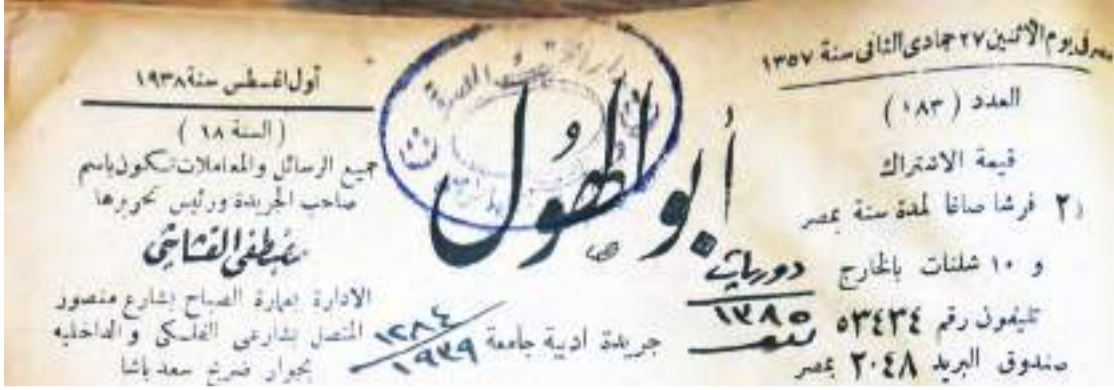 مصر في يوم الاثنين ٢٧ جمادى الثانى سنة ١٣٥٧
العدد ( ١٨٣ )
قيمة الاشتراك
٢ قرشا صاغا لمدة سنة بمصر
و ١٠ شلنات بالخارج
تليفون رقم ٥٣٤٣٤
صندوق البريد ٢٠٤٨ بمصر
أبو الهول
دوريات
١٣٨٥
جريدة ادبية جامعة
١٢٨٤
١٩٣٩
أول اغسطس سنة ١٩٣٨
( السنة ١٨ )
جميع الرسائل والمعاملات تكون باسم
صاحب الجريدة ورئيس تحريرها
مصطفى القشاشى
الادارة بعمارة الصباح بشارع منصور
المتصل بشارعى الفلكى والداخليه
بجوار ضريح سعد باشا